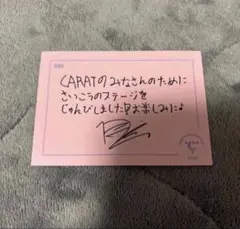 CARATのみなさんのために
さいこうのステージを
じゅんびしました!お楽しみに♪